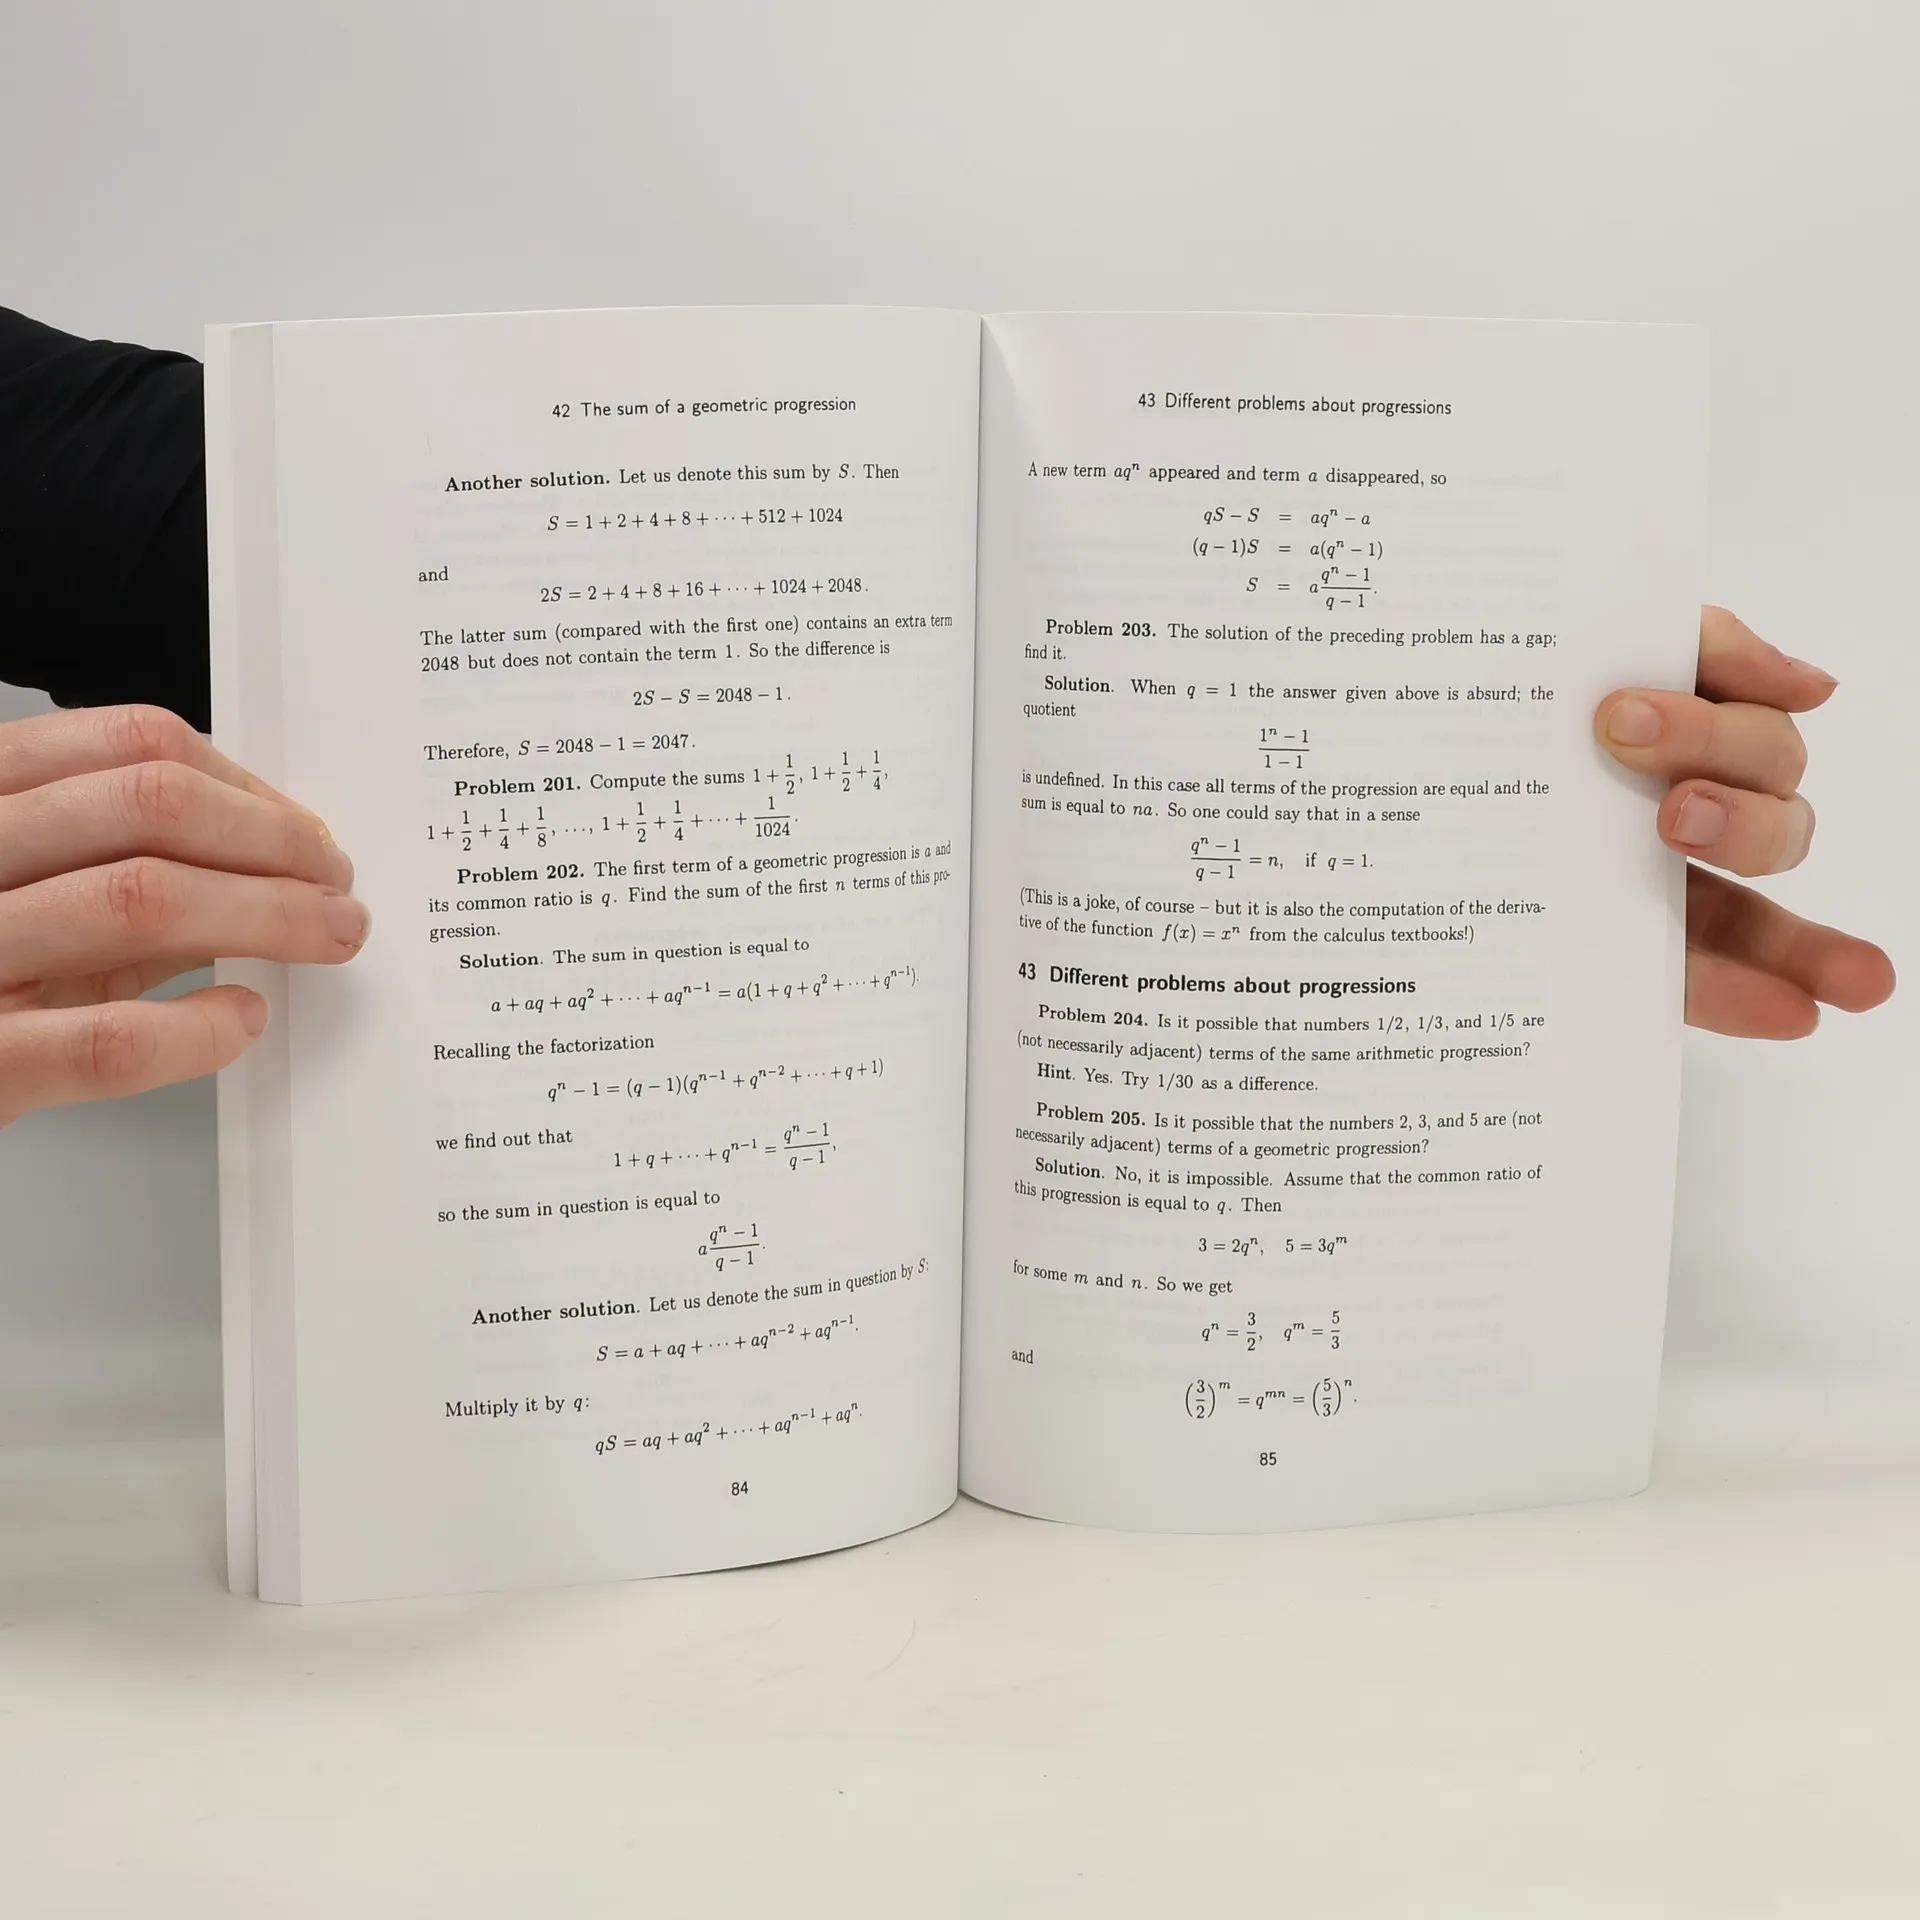 42 The sum of a geometric progression
Another solution. Let us denote this sum by S. Then
S = 1 + 2 + 4 + 8 + ⋯ + 512 + 1024
and
2S = 2 + 4 + 8 + 16 + ⋯ + 1024 + 2048.
The latter sum (compared with the first one) contains an extra term
2048 but does not contain the term 1. So the difference is
2S − S = 2048 − 1.
Therefore, S = 2048 − 1 = 2047.
Problem 201. Compute the sums 1 + 1/2, 1 + 1/2 + 1/4,
1 + 1/2 + 1/4 + 1/8, …, 1 + 1/2 + 1/4 + ⋯ + 1/1024.
Problem 202. The first term of a geometric progression is a and
its common ratio is q. Find the sum of the first n terms of this pro-
gression.
Solution. The sum in question is equal to
a + aq + aq² + ⋯ + aqⁿ⁻¹ = a(1 + q + q² + ⋯ + qⁿ⁻¹).
Recalling the factorization
qⁿ − 1 = (q − 1)(qⁿ⁻¹ + qⁿ⁻² + ⋯ + q + 1)
we find out that
1 + q + ⋯ + qⁿ⁻¹ = (qⁿ − 1)/(q − 1),
so the sum in question is equal to
a (qⁿ − 1)/(q − 1).
Another solution. Let us denote the sum in question by S:
S = a + aq + ⋯ + aqⁿ⁻² + aqⁿ⁻¹.
Multiply it by q:
qS = aq + aq² + ⋯ + aqⁿ⁻¹ + aqⁿ.
84
43 Different problems about progressions
A new term aqⁿ appeared and term a disappeared, so
qS − S = aqⁿ − a
(q − 1)S = a(qⁿ − 1)
S = a (qⁿ − 1)/(q − 1).
Problem 203. The solution of the preceding problem has a gap;
find it.
Solution. When q = 1 the answer given above is absurd; the
quotient
(1ⁿ − 1)/(1 − 1)
is undefined. In this case all terms of the progression are equal and the
sum is equal to na. So one could say that in a sense
(qⁿ − 1)/(q − 1) = n, if q = 1.
(This is a joke, of course – but it is also the computation of the deriva-
tive of the function f(x) = xⁿ from the calculus textbooks!)
43 Different problems about progressions
Problem 204. Is it possible that numbers 1/2, 1/3, and 1/5 are
(not necessarily adjacent) terms of the same arithmetic progression?
Hint. Yes. Try 1/30 as a difference.
Problem 205. Is it possible that the numbers 2, 3, and 5 are (not
necessarily adjacent) terms of a geometric progression?
Solution. No, it is impossible. Assume that the common ratio of
this progression is equal to q. Then
3 = 2qⁿ, 5 = 3qᵐ
for some m and n. So we get
qⁿ = 3/2, qᵐ = 5/3
and
(3/2)ᵐ = qᵐⁿ = (5/3)ⁿ.
85